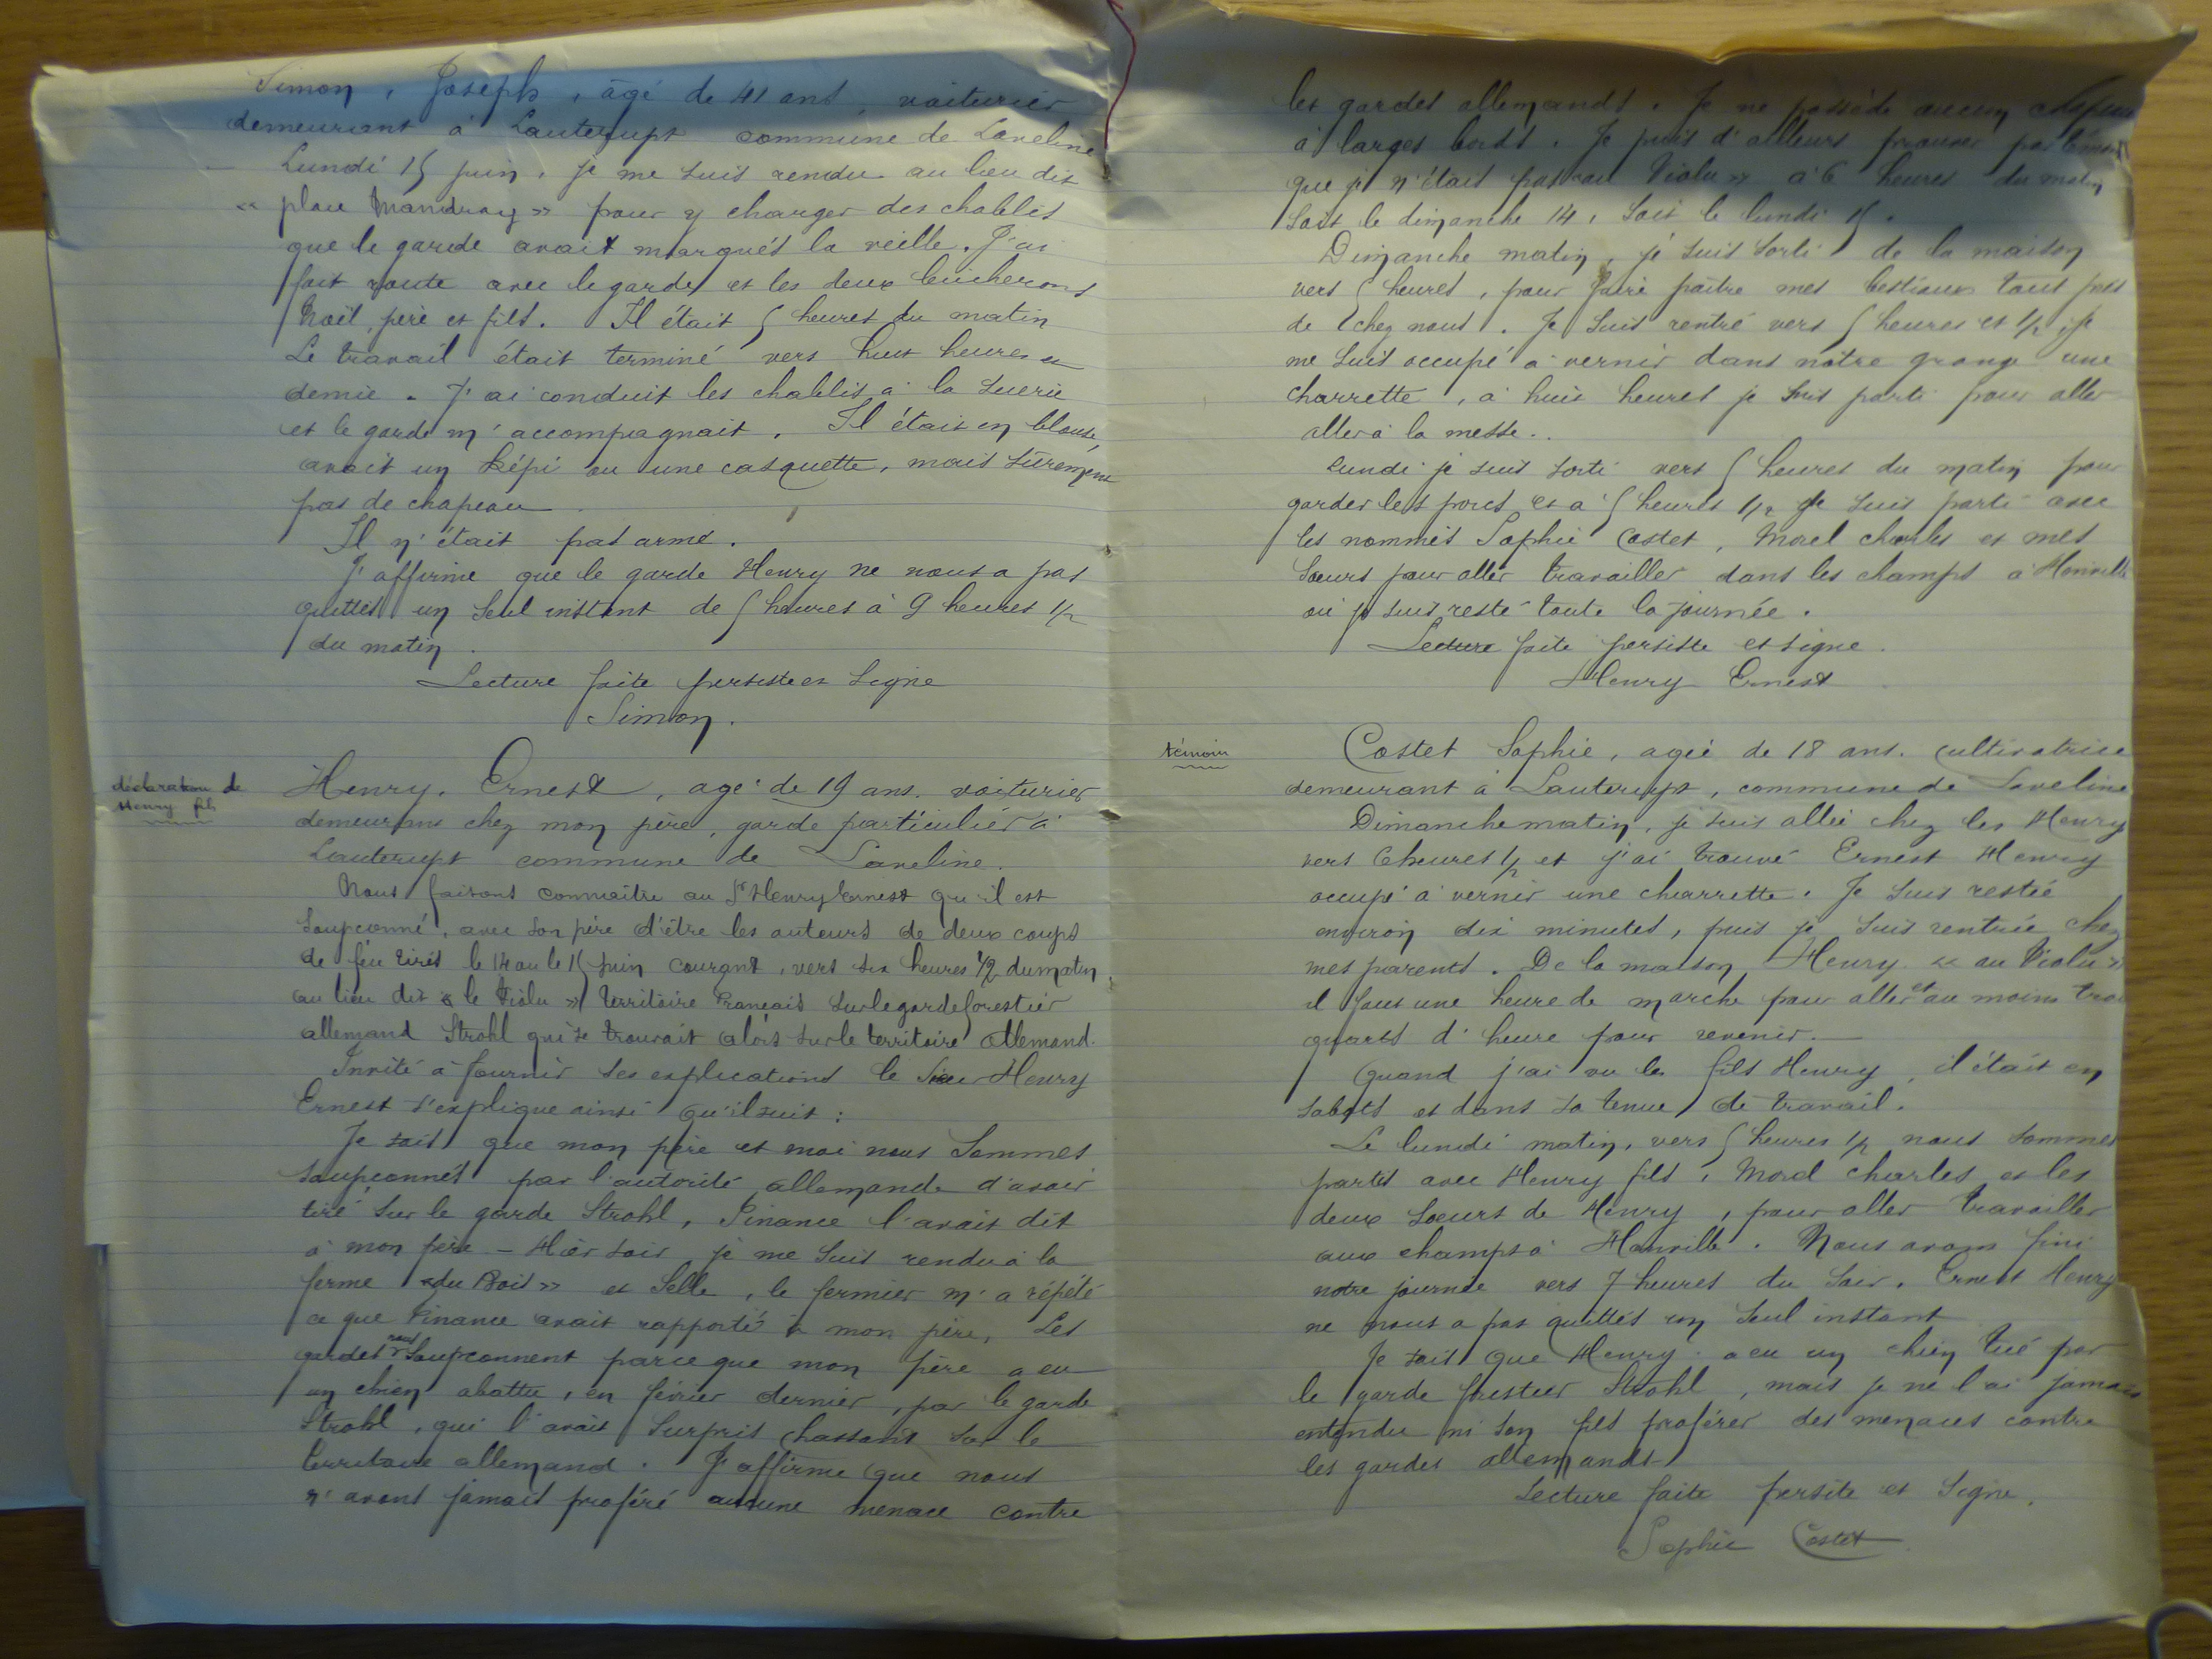 Simon, Joseph, âgé de 41 ans, voiturier
demeurant à Lauterupt commune de Laveline
Lundi 15 juin, je me suis rendu au lieu dit
« place Mandray » pour y charger des chablis
que le garde avait marqués la veille. J'ai
fait route avec le garde et les deux bûcherons
Noël, père et fils. Il était 5 heures du matin
Le travail était terminé vers huit heures et
demie. J'ai conduit les chablis à la scierie
et le garde m'accompagnait. Il était en blouse,
avait un képi ou une casquette, mais sûrement
pas de chapeau.
Il n'était pas armé.
J'affirme que le garde Henry ne nous a pas
quittés un seul instant de 5 heures à 9 heures 1/2
du matin.
Lecture faite persiste et signe
Simon.
déclaration de
Henry fils
Henry, Ernest, agé de 19 ans. voiturier
demeurant chez mon père, garde particulier à
Lauterupt commune de Laveline.
Nous faisons connaitre au Sr Henry Ernest qu'il est
soupçonné, avec son père d'être les auteurs de deux coups
de feu tirés le 14 ou le 15 juin courant, vers six heures 1/2 du matin,
au lieu dit « le Violu » territoire Français sur le garde forestier
allemand Strohl qui se trouvait alors sur le territoire Allemand.
Invité à fournir ses explications le Sieur Henry
Ernest s'explique ainsi qu'il suit :
Je sais que mon père et moi nous sommes
soupçonnés par l'autorité allemande d'avoir
tiré sur le garde Strohl, Finance l'avait dit
à mon père – Hier soir je me suis rendu à la
ferme « du Bois » et Selle, le fermier m'a répété
ce que Finance avait rapporté à mon père. Les
gardes nous soupçonnent parce que mon père a eu
un chien abattu, en février dernier, par le garde
Strohl, qui l'avait surpris chassant sur le
territoire allemand. J'affirme que nous
n'avons jamais proféré aucune menace contre
les gardes allemands. Je ne possède aucun chapeau
à larges bords. Je puis d'ailleurs prouver par témoins
que je n'étais pas « au Violu » à 6 heures du matin
soit le dimanche 14, soit le lundi 15.
Dimanche matin, je suis sorti de la maison
vers 5 heures, pour faire paître mes bestiaux tout près
de chez nous. Je suis rentré vers 5 heures et 1/2, je
me suis occupé à vernir dans notre grange une
charrette, à huit heures je suis parti pour aller
aller à la messe..
Lundi je suis sorti vers 5 heures du matin pour
garder les porcs et à 5 heures 1/2 je suis parti avec
les nommés Sophie Costet, Morel Charles et mes
sœurs pour aller travailler dans les champs à Honville
où je suis resté toute la journée.
Lecture faite persiste et signe.
Henry Ernest
témoin
Costet Sophie, agée de 18 ans. cultivatrice
demeurant à Lauterupt, commune de Laveline
Dimanche matin, je suis allée chez les Henry
vers 6 heures 1/2 et j'ai trouvé Ernest Henry
occupé à vernir une charrette. Je suis restée
environ dix minutes, puis je suis rentrée chez
mes parents. De la maison Henry « au Violu »
il faut une heure de marche pour aller et au moins trois
quarts d'heure pour revenir.
Quand j'ai vu le fils Henry, il était en
sabots et dans sa tenue de travail.
Le lundi matin, vers 5 heures 1/2 nous sommes
partis avec Henry fils, Morel Charles et les
deux sœurs de Henry, pour aller travailler
aux champs à Honville. Nous avons fini
notre journée vers 7 heures du soir. Ernest Henry
ne nous a pas quittés un seul instant
Je sais que Henry a eu un chien tué par
le garde forestier Strohl, mais je ne l'ai jamais
entendu ni son fils proférer des menaces contre
les gardes allemands.
Lecture faite persite et signe.
Sophie Costet